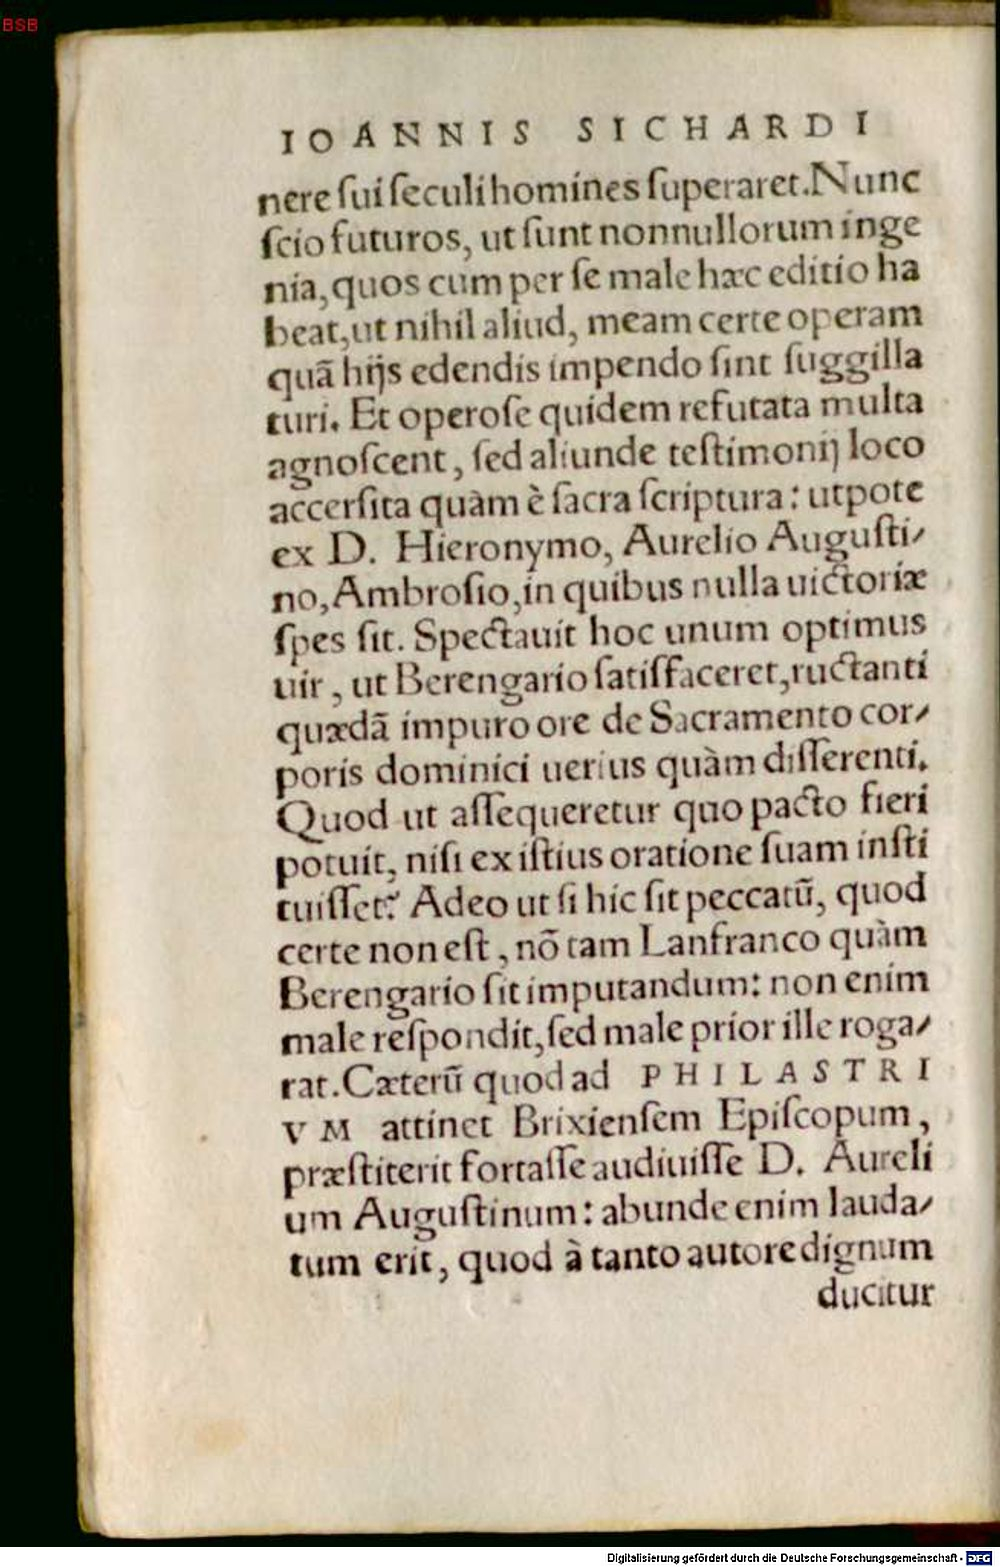 BSB
IOANNIS SICHARDI
nere ſui ſeculi homines ſuperaret. Nunc
ſcio futuros, ut ſunt nonnullorum inge
nia, quos cum per ſe male hæc editio ha
beat, ut nihil aliud, meam certe operam
quã hijs edendis impendo ſint ſuggilla
turi. Et operoſe quidem refutata multa
agnoſcent, ſed aliunde teſtimonij loco
accerſita quàm è ſacra ſcriptura: utpote
ex D. Hieronymo, Aurelio Auguſti/
no, Ambroſio, in quibus nulla uictoriæ
ſpes ſit. Spectauit hoc unum optimus
uir, ut Berengario ſatiſfaceret, ructanti
quædã impuro ore de Sacramento cor/
poris dominici uerius quàm diſſerenti.
Quod ut aſſequeretur quo pacto fieri
potuit, niſi ex iſtius oratione ſuam inſti
tuiſſet? Adeo ut ſi hic ſit peccatũ, quod
certe non eſt, nõ tam Lanfranco quàm
Berengario ſit imputandum: non enim
male reſpondit, ſed male prior ille roga/
rat. Cæterũ quod ad PHILASTRI
VM attinet Brixienſem Epiſcopum,
præſtiterit fortaſſe audiuiſſe D. Aureli
um Auguſtinum: abunde enim lauda/
tum erit, quod à tanto autore dignum
ducitur
Digitalisierung gefördert durch die Deutsche Forschungsgemeinschaft - DFG